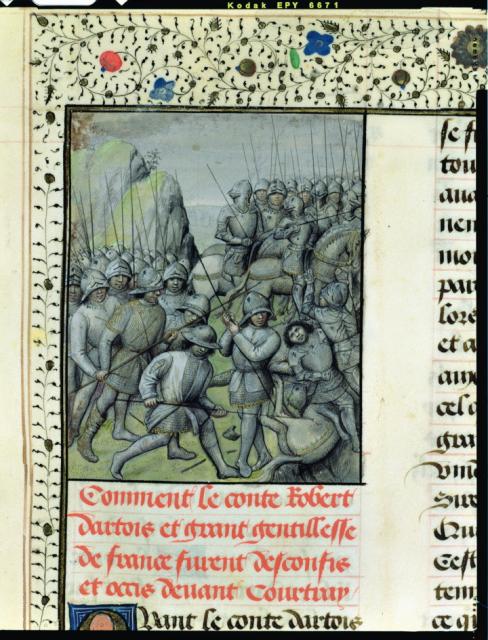 Kodak EPY 6671
Comment le conte Robert
dartois et grant gentillesse
de france furent desconfis
et occis devant Courtray
Quant le conte dartois
se f
tou
aua
nen
moi
par
lors
et a
ame
cel
gra
Sire
Qu
Cest
tem
ce qu